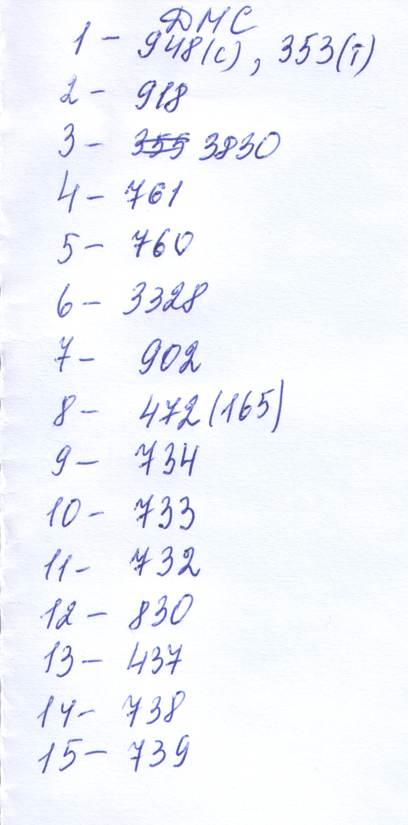 ДМС
1 - 948(с), 353(т)
2 - 918
3 - 355 3830
4 - 761
5 - 760
6 - 3328
7 - 902
8 - 472(165)
9 - 734
10 - 733
11 - 732
12 - 830
13 - 437
14 - 738
15 - 739